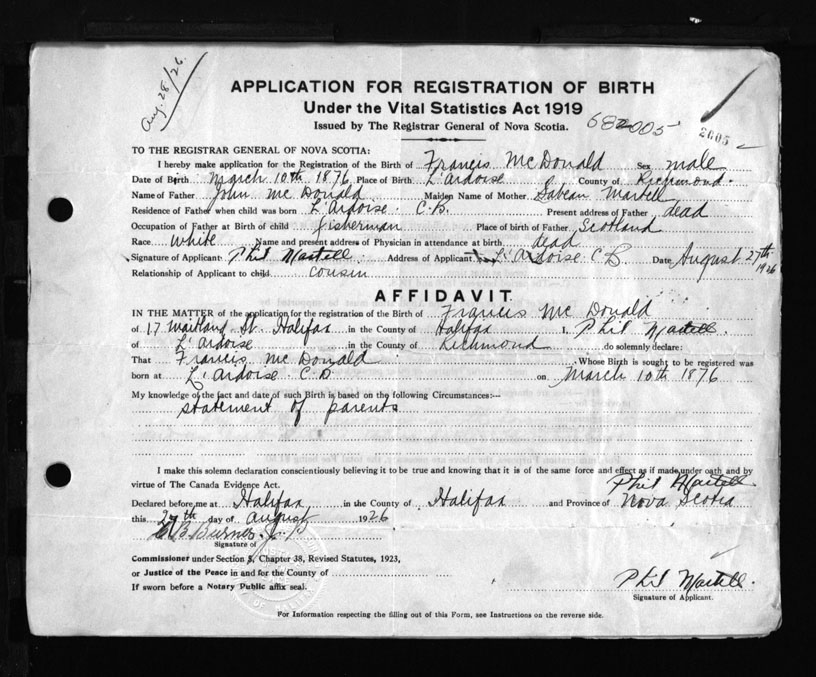 Aug. 28/26.
APPLICATION FOR REGISTRATION OF BIRTH
Under the Vital Statistics Act 1919
Issued by The Registrar General of Nova Scotia.
682005
2005
TO THE REGISTRAR GENERAL OF NOVA SCOTIA:
I hereby make application for the Registration of the Birth of Francis McDonald Sex male
Date of Birth March 10th 1876 Place of Birth L'Ardoise County of Richmond.
Name of Father John McDonald Maiden Name of Mother Sabean Martell
Residence of Father when child was born L'Ardoise C.B. Present address of Father dead
Occupation of Father at Birth of child fisherman Place of birth of Father Scotland
Race white Name and present address of Physician in attendance at birth dead
Signature of Applicant Phil Martell Address of Applicant L'Ardoise C B Date August 27th 1926
Relationship of Applicant to child cousin
AFFIDAVIT
IN THE MATTER of the application for the registration of the Birth of Francis McDonald
of 17 Maitland St. Halifax in the County of Halifax I, Phil Martell
of L'Ardoise in the County of Richmond do solemnly declare:
That Francis McDonald Whose Birth is sought to be registered was
born at L'Ardoise C.B on March 10th 1876
My knowledge of the fact and date of such Birth is based on the following Circumstances:—
statement of parents
I make this solemn declaration conscientiously believing it to be true and knowing that it is of the same force and effect as if made under oath and by
virtue of The Canada Evidence Act.
Phil Martell
Declared before me at Halifax in the County of Halifax and Province of Nova Scotia
this 27th day of August 1926
Signature of
Commissioner under Section 3, Chapter 38, Revised Statutes, 1923,
or Justice of the Peace in and for the County of
If sworn before a Notary Public affix seal.
Phil Martell
Signature of Applicant.
For Information respecting the filling out of this Form, see Instructions on the reverse side.